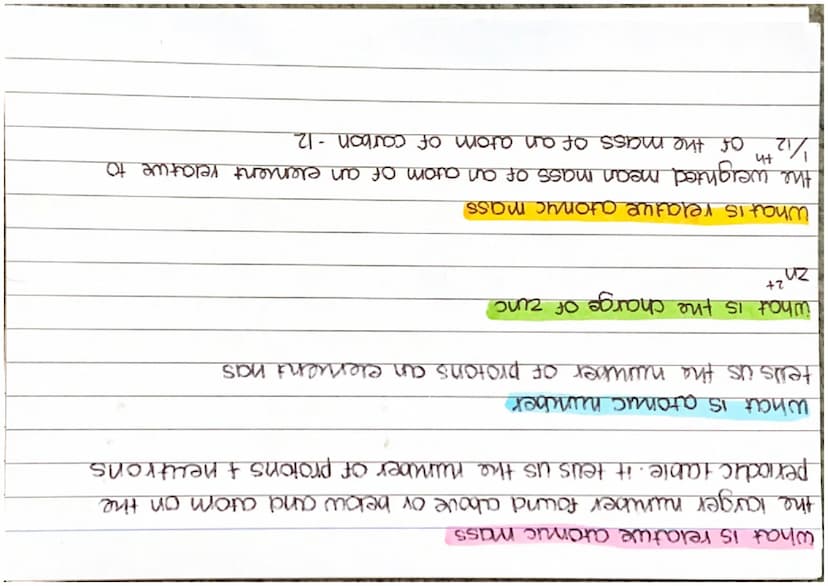 what is relative atomic mass
the larger number found above or below and atom on the
periodic table. it tells us the number of protons + neutrons
what is atomic number
tells us the number of protons an element has
what is the charge of zinc
Zn 2+
what is relative atomic mass
the weighted mean mass of an atom of an element relative to
1/12 th of the mass of an atom of carbon - 12